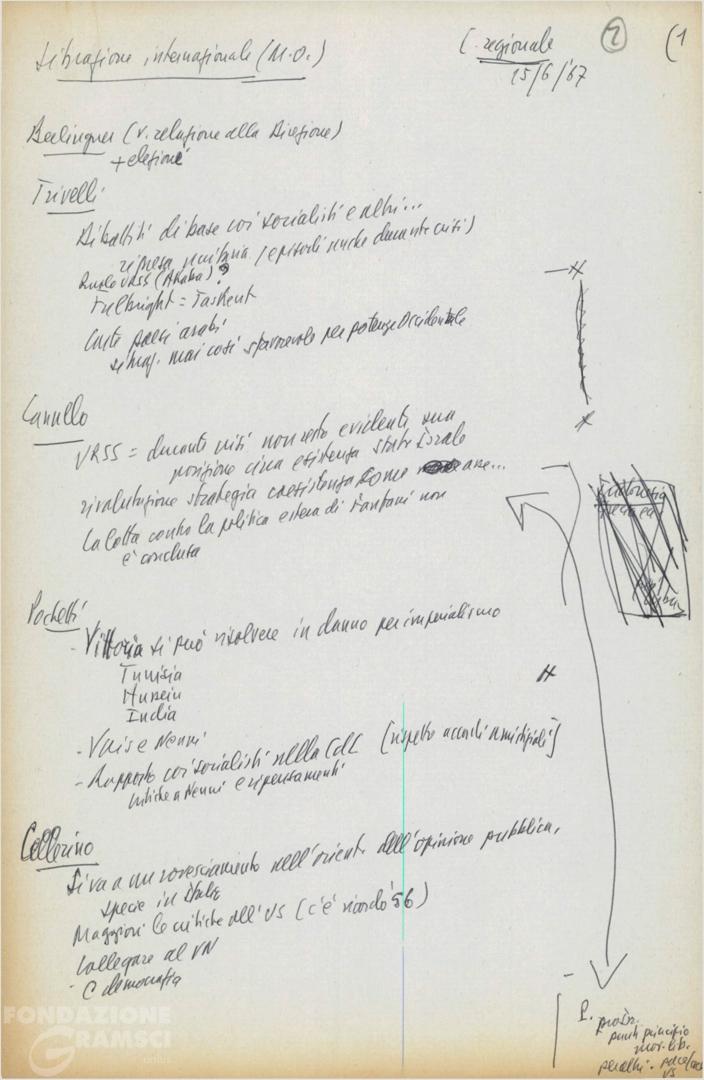 Situazione internazionale (M.O.)
C. regionale
15/6/67
2
(1
Berlinguer (v. relazione alla Direzione)
+ elezioni
Trivelli
Dibattiti di base coi socialisti e altri...
ripresa unitaria (episodi anche durante crisi)
Ruolo URSS (Akaba)?
Fulbright = Taskent
Unità paesi arabi
situaz. mai così sfavorevole per potenze Occidentale
Cannello
URSS = durante crisi non resto evidente sua
posizione circa esistenza stato Israele
rivalutazione strategia coesistenza come
La lotta contro la politica estera di Fanfani non
è conclusa
Pochetti
- Vittoria si può risolvere in danno per imperialismo
Tunisia
Hussein
India
- Unis e Nenni
- Rapporto coi socialisti nella CdL [rispetto accordi amichevoli]
critiche a Nenni e ripensamenti
Cellerino
Si va a un rovesciamento nell'oriente dell'opinione pubblica,
specie in Italia
Maggiori le critiche all'US (c'è ricordo '56)
Collegare al VN
- C democrazia
H
P.
punti principio
mov. lib.
US
FONDAZIONE
GRAMSCI
onlus